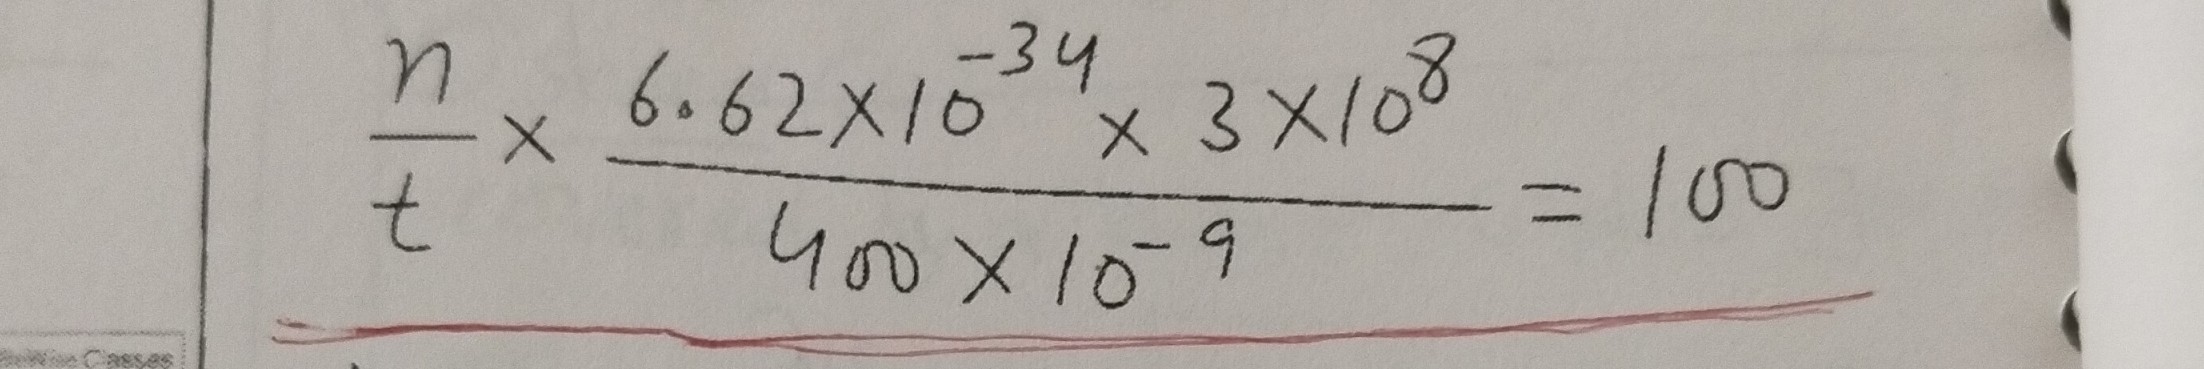 n/t × (6.62×10⁻³⁴ × 3×10⁸)/(400×10⁻⁹) = 100
Classes